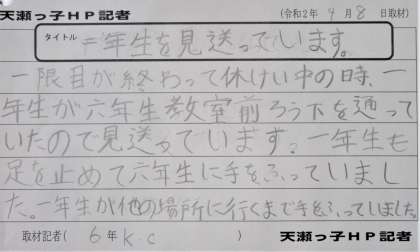 天瀬っ子HP記者 (令和2年 4月 8日取材)
タイトル 一年生を見送っています。
一限目が終わって休けい中の時、一
年生が六年生教室前ろう下を通って
いたので見送っています。一年生も
足を止めて六年生に手をふっていまし
た。一年生が他の場所に行くまで手をふっていました。
取材記者( 6年 K.C ) 天瀬っ子HP記者